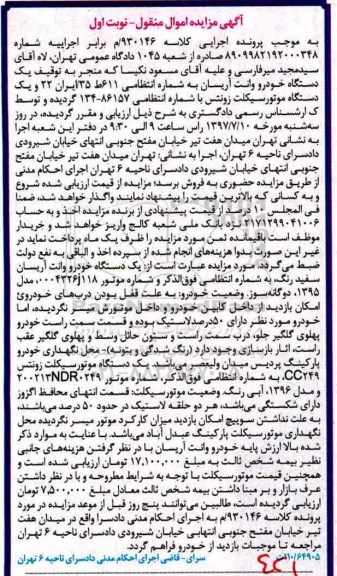 آگهی مزایده اموال منقول- نوبت اول
به موجب پرونده اجرایی کلاسه ۹۳۰۱۴۶/م برابر اجراییه شماره
۸۹۰۹۹۸۲۱۹۲۰۰۰۳۴۸ صادره از شعبه ۱۰۴۵ دادگاه عمومی تهران، له آقای
سیدمجید میرفارسی و علیه آقای مسعود نکیسا که منجر به توقیف یک
دستگاه خودرو وانت آریسان به شماره انتظامی ۶۱۱ط ۳۵ایران ۲۲ و یک
دستگاه موتورسیکلت زونتس با شماره انتظامی ۸۶۱۵۷-۱۳۴ گردیده و توسط
کارشناس رسمی دادگستری به شرح ذیل ارزیابی و مقرر گردیده، در روز
سه‌شنبه مورخه ۱۳۹۷/۷/۱۰ راس ساعت ۹ الی ۹:۳۰ در دفتر این شعبه اجرا
به نشانی تهران میدان هفت تیر خیابان مفتح جنوبی انتهای خیابان شیرودی
دادسرای ناحیه ۶ تهران، اجرا به نشانی: تهران میدان هفت تیر خیابان مفتح
جنوبی انتهای خیابان شیرودی دادسرای ناحیه ۶ تهران اجرای احکام مدنی
از طریق مزایده حضوری به فروش برسد؛ مزایده از قیمت ارزیابی شده شروع
و به کسانی که بالاترین قیمت را پیشنهاد نمایند واگذار خواهد شد، ضمنا
فی المجلس ۱۰ درصد از قیمت پیشنهادی از برنده مزایده اخذ و به حساب
۲۱۷۱۲۹۹۰۴۱۰۰۶ نزد بانک ملی شعبه کالج واریز خواهد شد و خریدار
موظف است باقیمانده ثمن مورد مزایده را ظرف یک ماه پرداخت نماید در
غیر این صورت بدوا هزینه‌های انجام شده از سپرده اخذ و الباقی به نفع دولت
ضبط می‌گردد. مورد مزایده عبارت است از: یک دستگاه خودرو وانت آریسان
سفید رنگ، به شماره انتظامی فوق‌الذکر و شماره موتور ۰۰۰۴۳۲۶J۱۱۸، مدل
۱۳۹۵، دوگانه‌سوز. وضعیت خودرو: به علت قفل بودن درب‌های خودرو
امکان بازدید از داخل کابین خودرو و داخل موتورش میسر نگردیده، اما
خودرو مورد نظر دارای ۵۰درصدلاستیک بوده و قسمت سمت راست خودرو
پهلوی گلگیر جلو، درب سمت راست و ستون حائل وسط و پهلوی گلگیر عقب
راست، آثار بازسازی وجود دارد (رنگ شدگی و بتونه)- محل نگهداری خودرو
پارکینگ پردیس میدان ولیعصر می‌باشد و یک دستگاه موتورسیکلت زونتس
CC۲۴۹، به شماره انتظامی فوق‌الذکر، شماره موتور ۲۰۰۲۱۳NDR۰۲۴۹
و مدل ۱۳۹۶، آبی رنگ. وضعیت موتورسیکلت: قسمت انتهای محافظ اگزوز
دارای شکستگی می‌باشد، هر دو حلقه لاستیک در حدود ۵۰ درصد می‌باشند،
به علت نداشتن سوییچ امکان بازدید میزان کارکرد موتور میسر نگردیده محل
نگهداری موتورسیکلت پارکینگ عبدل آباد می‌باشد. با عنایت به موارد ذکر
شده بالا ارزش پایه خودرو وانت آریسان با در نظر گرفتن هزینه‌های جانبی
نظیر بیمه شخص ثالث به مبلغ ۱۷,۱۰۰,۰۰۰ تومان ارزیابی شده است و
همچنین قیمت موتورسیکلت با توجه به شرایط مطروحه و با در نظر داشتن
عرف بازار و بر مبنا داشتن بیمه شخص ثالث معادل مبلغ ۷,۵۰۰,۰۰۰ تومان
ارزیابی گردیده است، طالبین می‌توانند پنج روز قبل از موعد مزایده در مورد
پرونده کلاسه ۹۳۰۱۴۶/م به اجرای احکام مدنی دادسرا واقع در میدان هفت
تیر خیابان مفتح جنوبی انتهایی خیابان شیرودی دادسرای ناحیه ۶ تهران
مراجعه تا موجبات بازدید از خودرو فراهم گردد.
۱۱۰/۶۴۹۰۵ت سرای- قاضی اجرای احکام مدنی دادسرای ناحیه ۶ تهران